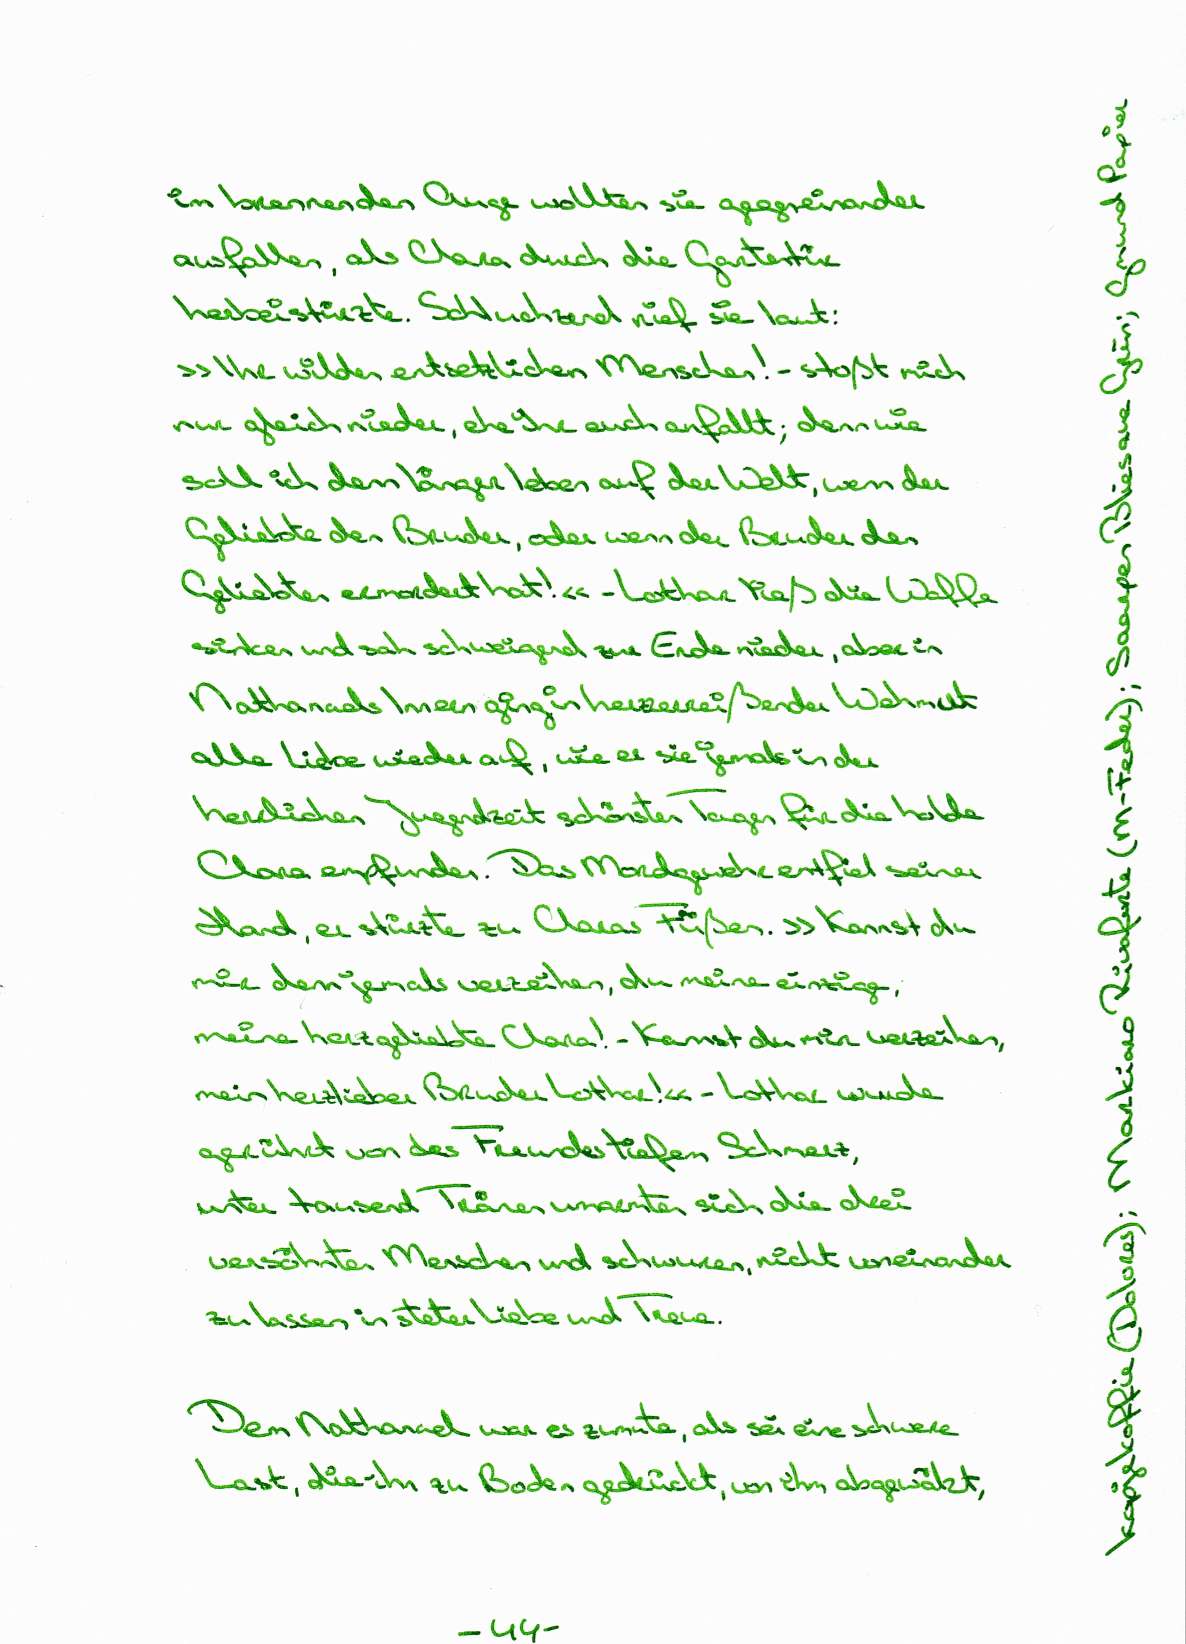 im brennenden Auge wollten sie gegeneinander
ausfallen, als Clara durch die Gartentür
herbeistürzte. Schluchzend rief sie laut:
>>Ihr wilden entsetzlichen Menschen! - stoßt mich
nur gleich nieder, ehe ihr euch anfallt; denn wie
soll ich denn länger leben auf der Welt, wenn der
Geliebte den Bruder, oder wenn der Bruder den
Geliebten ermordet hat!<< - Lothar ließ die Waffe
sinken und sah schweigend zur Erde nieder, aber in
Nathanaels Innern ging in herzzerreißender Wehmut
alle Liebe wieder auf, wie er sie jemals in der
herrlichen Jugendzeit schönsten Tagen für die holde
Clara empfunden. Das Mordgewehr entfiel seiner
Hand, er stürzte zu Claras Füßen. >>Kannst du
mir denn jemals verzeihen, du meine einzige,
meine herzgeliebte Clara! - Kannst du mir verzeihen,
mein herzlieber Bruder Lothar!<< - Lothar wurde
gerührt von des Freundes tiefen Schmerz,
unter tausend Tränen umarmten sich die drei
versöhnten Menschen und schwuren, nicht voneinander
zu lassen in steter Liebe und Treue.
Dem Nathanael war es zumute, als sei eine schwere
Last, die ihn zu Boden gedrückt, von ihm abgewälzt,
-44-
kopigkoffie (Dolores); Markiaro Rivaforte (M-Feder); Saarpen Bliesaue Grün; Gmund Papier